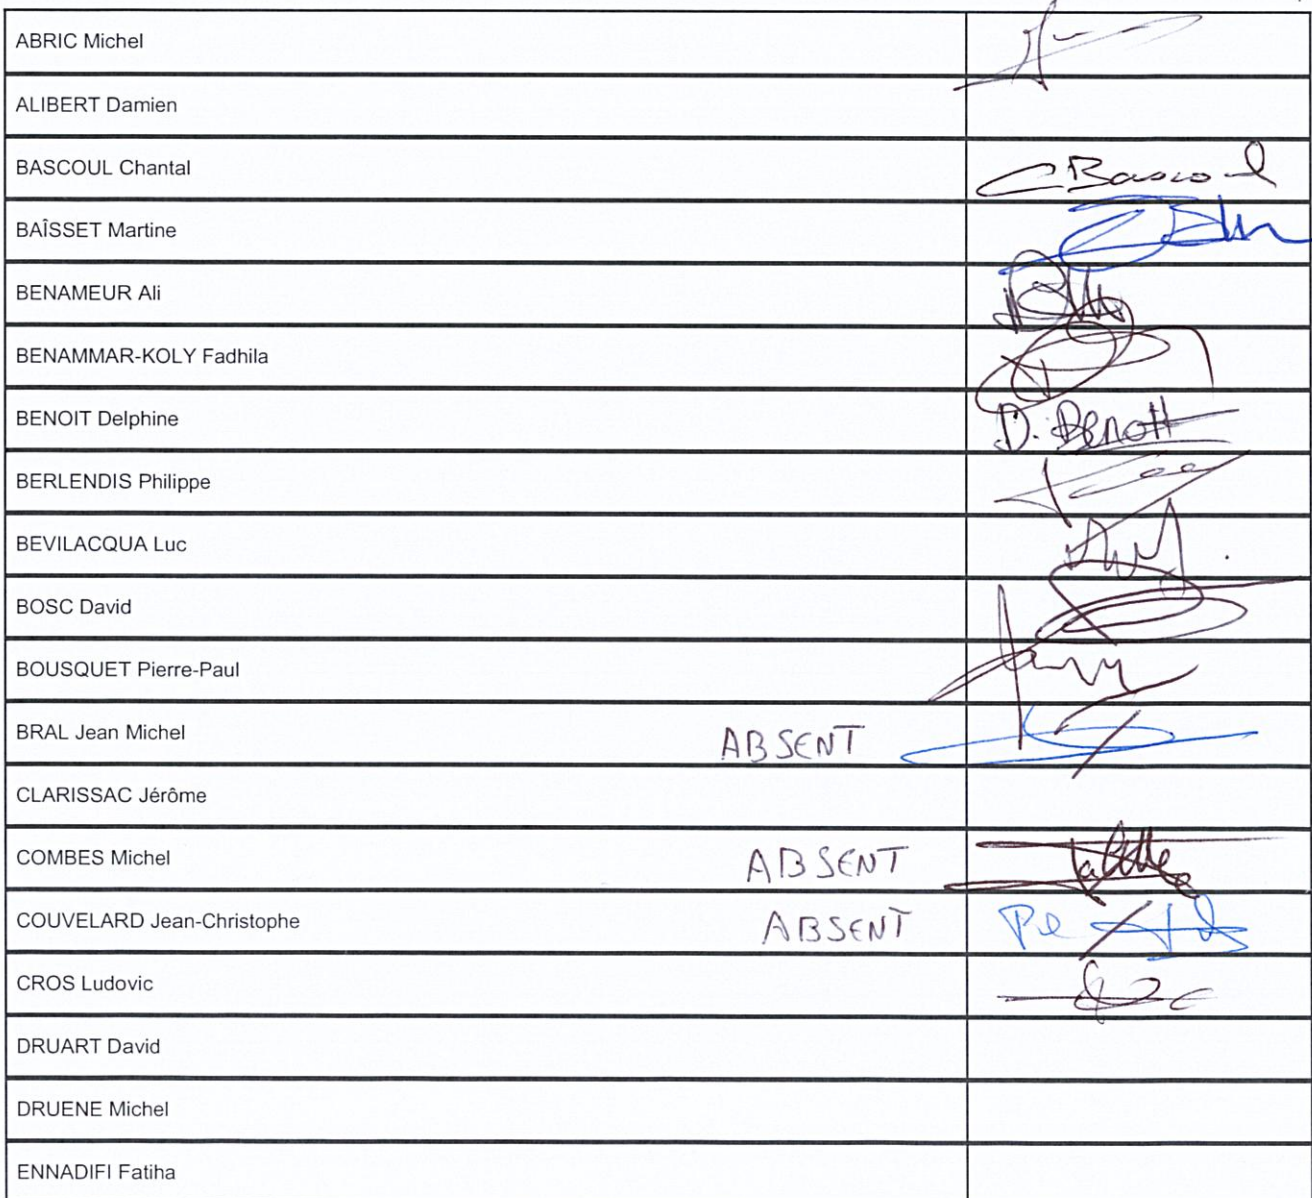 ABRIC Michel
ALIBERT Damien
BASCOUL Chantal
C Bascoul
BAÎSSET Martine
BENAMEUR Ali
BENAMMAR-KOLY Fadhila
BENOIT Delphine
D. BENOIT
BERLENDIS Philippe
BEVILACQUA Luc
BOSC David
BOUSQUET Pierre-Paul
BRAL Jean Michel ABSENT
CLARISSAC Jérôme
COMBES Michel ABSENT
COUVELARD Jean-Christophe ABSENT
CROS Ludovic
DRUART David
DRUENE Michel
ENNADIFI Fatiha